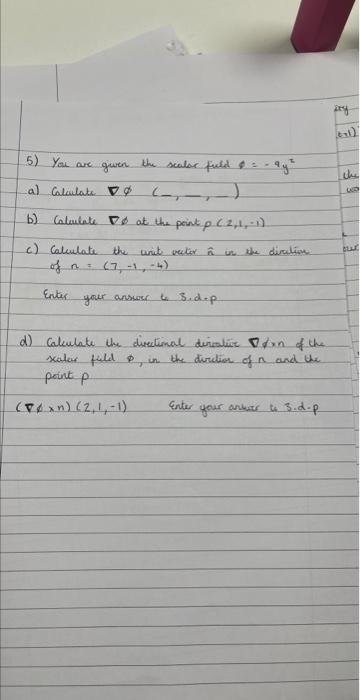 5) You are given the scalar field φ = -9y²
a) Calculate ∇φ (_, _, _)
b) Calculate ∇φ at the point p (2,1,-1)
c) Calculate the unit vector n̂ in the direction
of n = (7, -1, -4)
Enter your answer to 3.d.p
d) Calculate the directional derivative ∇φ×n of the
scalar field φ, in the direction of n and the
point p
(∇φ×n)(2,1,-1) Enter your answer to 3.d.p
the